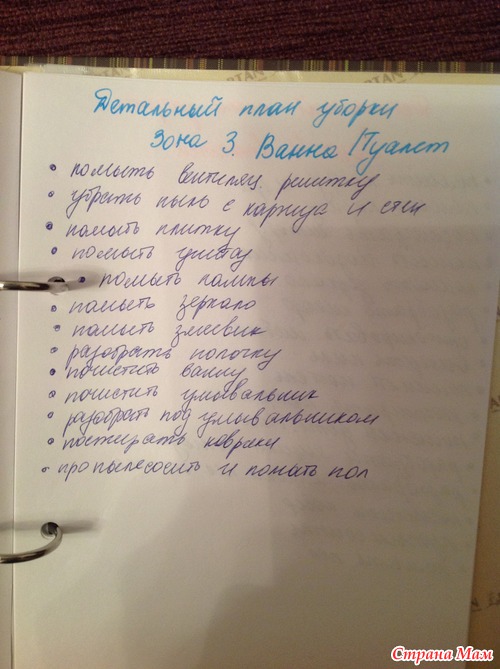 Детальный план уборки
Зона 3. Ванна/Туалет
• помыть вентиляц. решетку
• убрать пыль с карниза и стен
• помыть плитку
• помыть унитаз
• помыть лампы
• помыть зеркало
• помыть змеевик
• разобрать полочку
• почистить ванну
• почистить умывальник
• разобрать под умывальником
• постирать коврики
• пропылесосить и помыть пол
Страна Мам